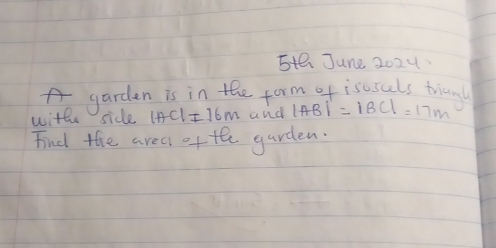 5th June 2024.
A garden is in the form of isoscels triangle
withe side |AC| = 16m and |AB| = |BC| = 17m
Find the area of the garden.